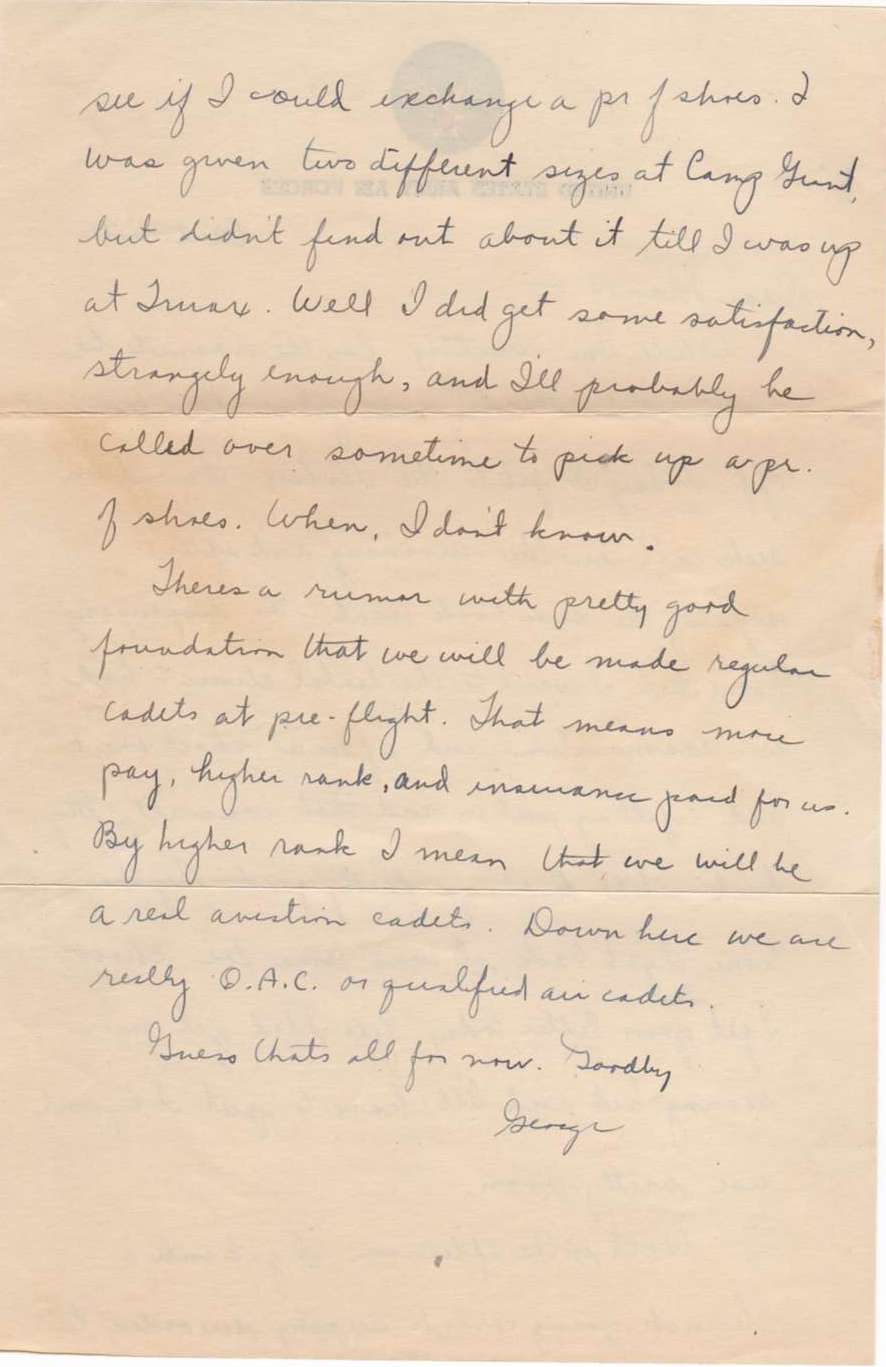 see if I could exchange a pr of shoes. I
was given two different sizes at Camp Grant,
but didn't find out about it till I was up
at Truax. Well I did get some satisfaction,
strangely enough, and I'll probably be
called over sometime to pick up a pr.
of shoes. When, I don't know.
Theres a rumor with pretty good
foundation that we will be made regular
cadets at pre-flight. That means more
pay, higher rank, and insurance paid for us.
By higher rank I mean that we will be
a real aviation cadets. Down here we are
really Q.A.C. or qualified air cadets.
Guess thats all for now. Goodby
George